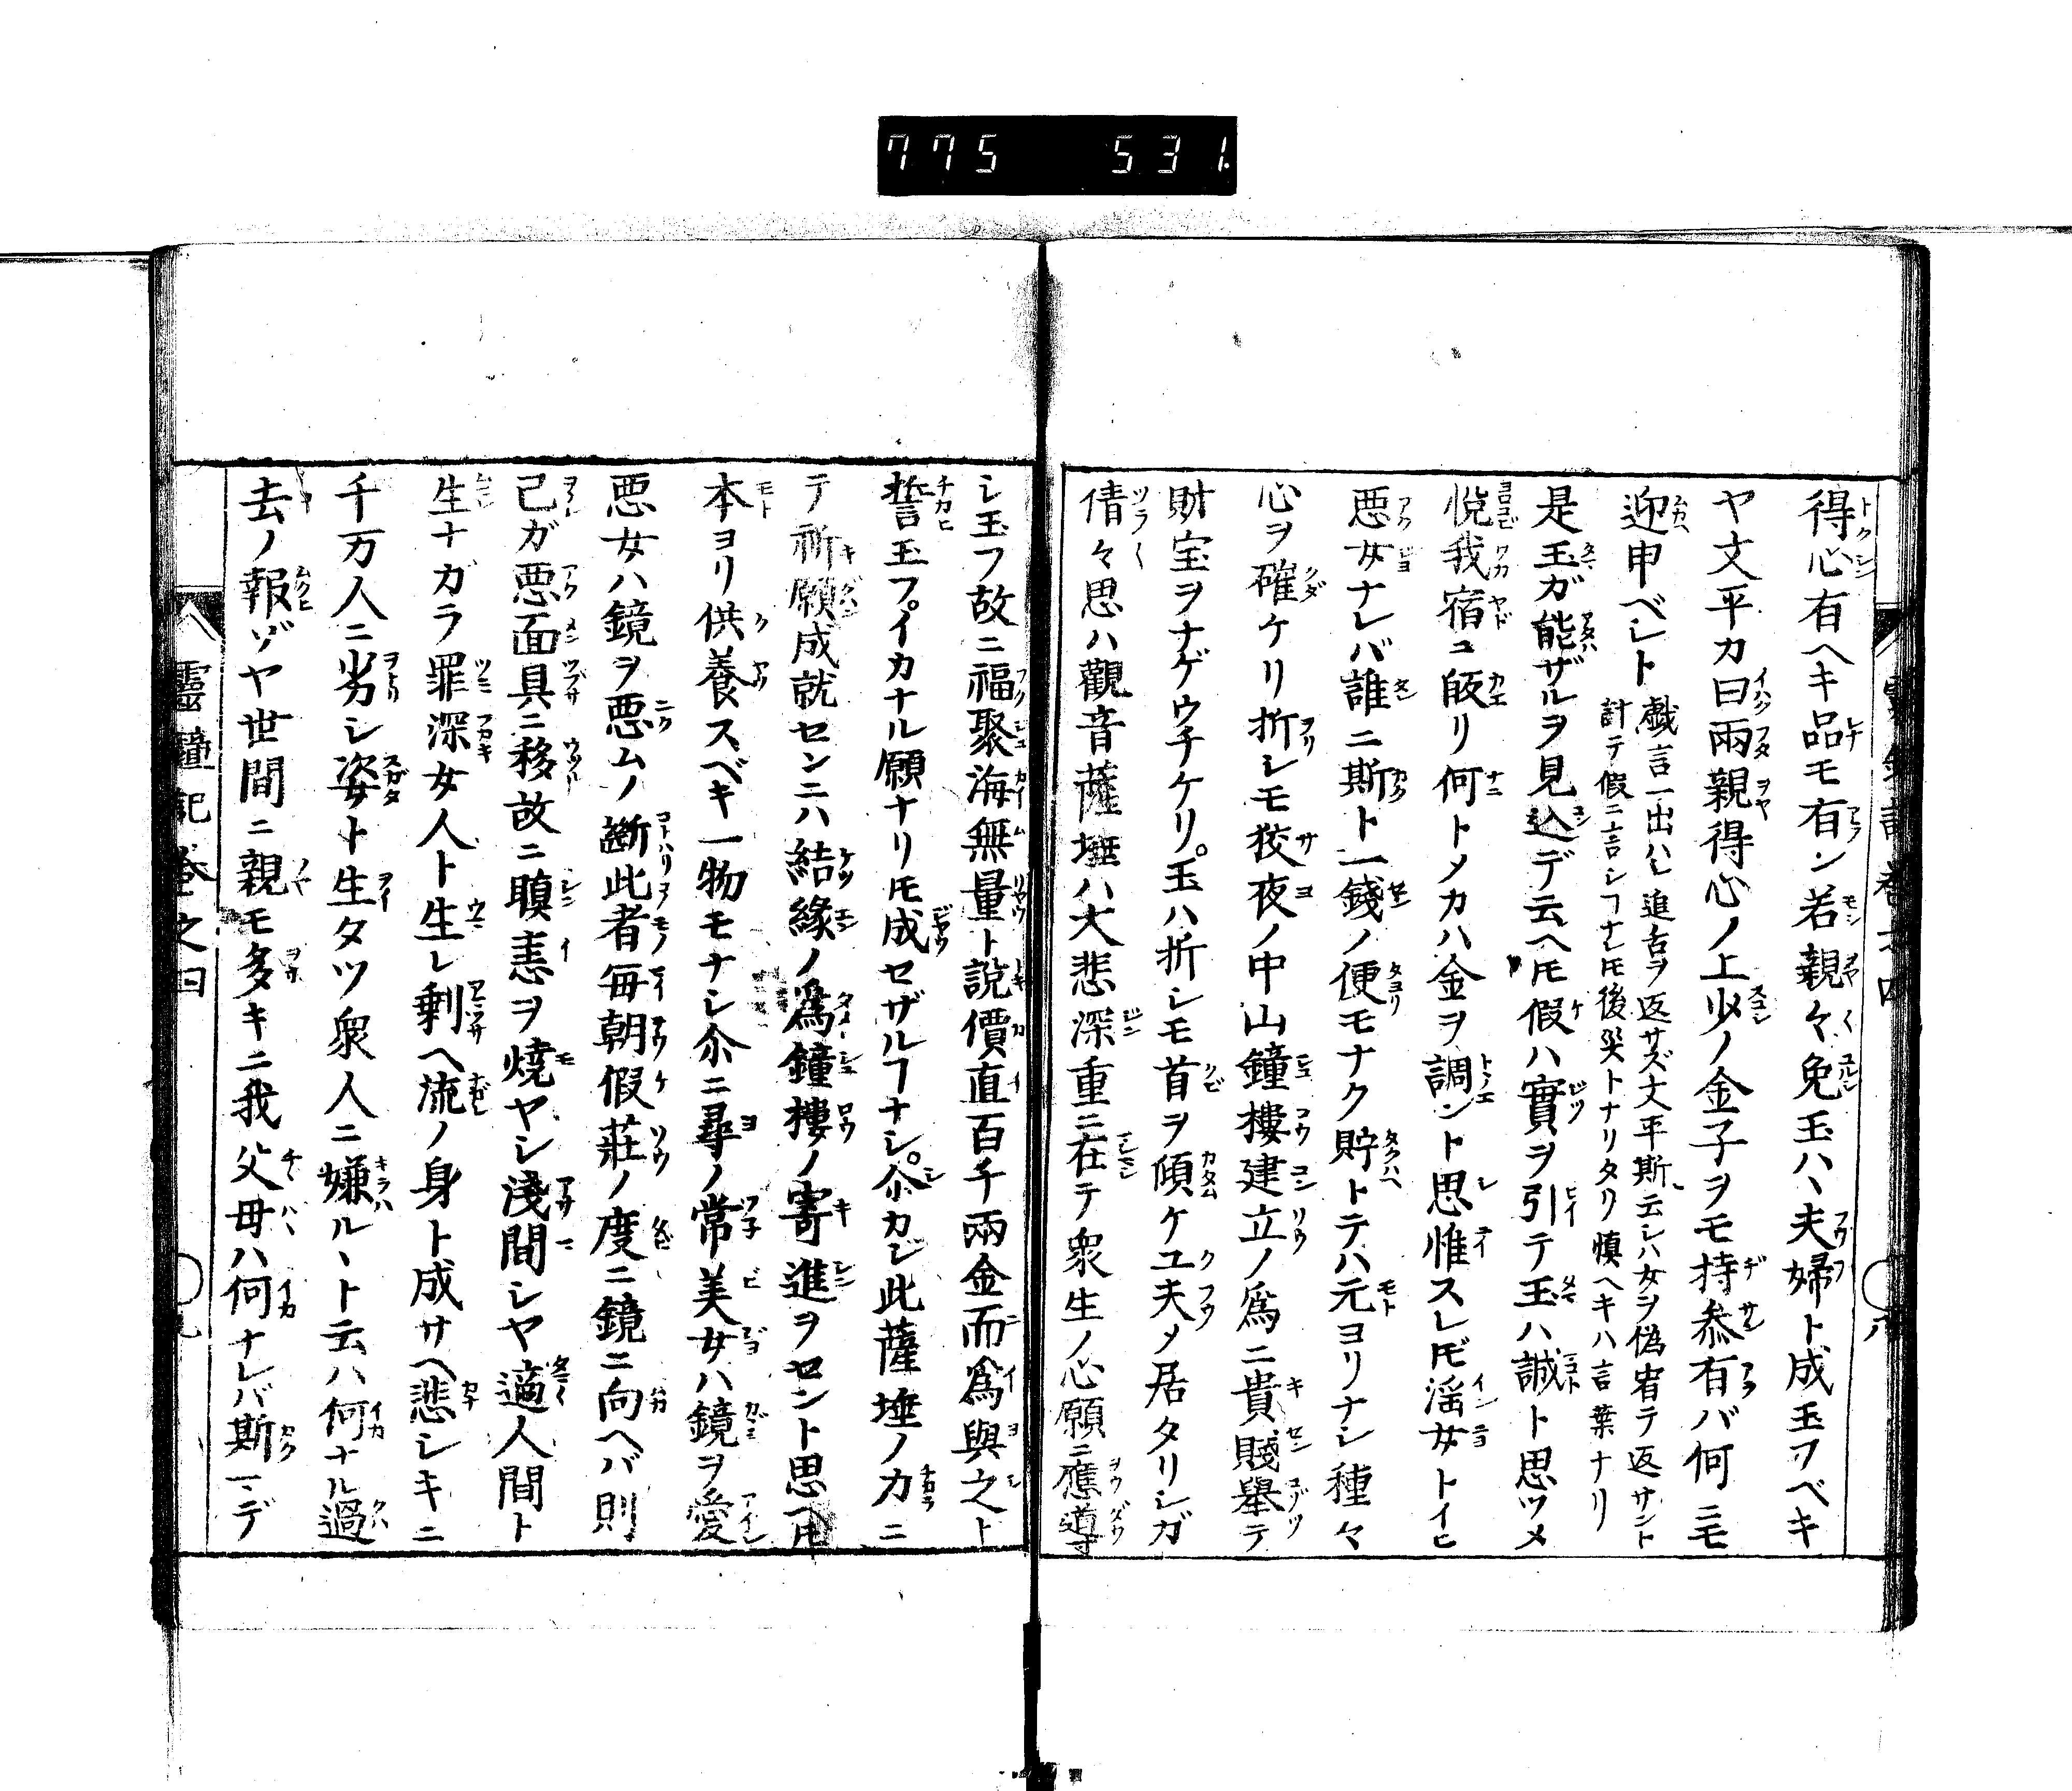 775 531
得心有ヘキ品モ有ン若親々免玉ハヽ夫婦ト成玉フベキ
ヤ文平カ曰兩親得心ノ上少ノ金子ヲモ持叅有バ何ニモ
迎申ベレト
戯言一出ハレ追吉ヲ返サズ文平斯云シハ女ヲ偽宥テ返サント
計テ假ニ言シヿナレ𪜈後災トナリタリ慎ヘキハ言葉ナリ
是玉ガ能ザルヲ見込デ云ヘ𪜈假ハ實ヲ引テ玉ハ誠ト思ツメ
悦我宿ヱ皈リ何トメカハ金ヲ調ント思惟スレ𪜈淫女トイヒ
悪女ナレバ誰ニ斯ト一錢ノ便モナク貯トテハ元ヨリナシ種々
心ヲ碓ケリ折シモ狡夜ノ中山鐘樓建立ノ爲ニ貴賤舉テ
財宝ヲナゲウチケリ。玉ハ折レモ首ヲ傾ケユ夫メ居タリシガ
倩々思ハ觀音薩埵ハ大悲深重ニ在テ衆生ノ心願ニ應導
シ玉フ故ニ福聚海無量ト說價直百千兩金而爲與之ト
誓玉フ。イカナル願ナリ𪜈成セザルヿナシ。尒カジ此薩埵ノカニ
テ祈願成就センニハ結緣ノ爲鐘樓ノ寄進ヲセント思ヘ𪜈
本ヨリ供養スベキ一物モナシ尒ニ尋ノ常美女ハ鏡ヲ愛
悪女ハ鏡ヲ悪ムノ斷此者每朝假莊ノ度ニ鏡ニ向ヘバ則
己ガ悪面具ニ移故ニ瞋恚ヲ燒ヤシ淺間シヤ適人間ト
生ナガラ罪深女人ト生レ剩ヘ流ノ身ト成サヘ悲レキニ
千万人ニ劣シ姿ト生タツ衆人ニ嫌ルヽト云ハ何ナル過
去ノ報ゾヤ世間ニ親モ多キニ我父母ハ何ナレバ斯マデ
靈鐘記卷之四